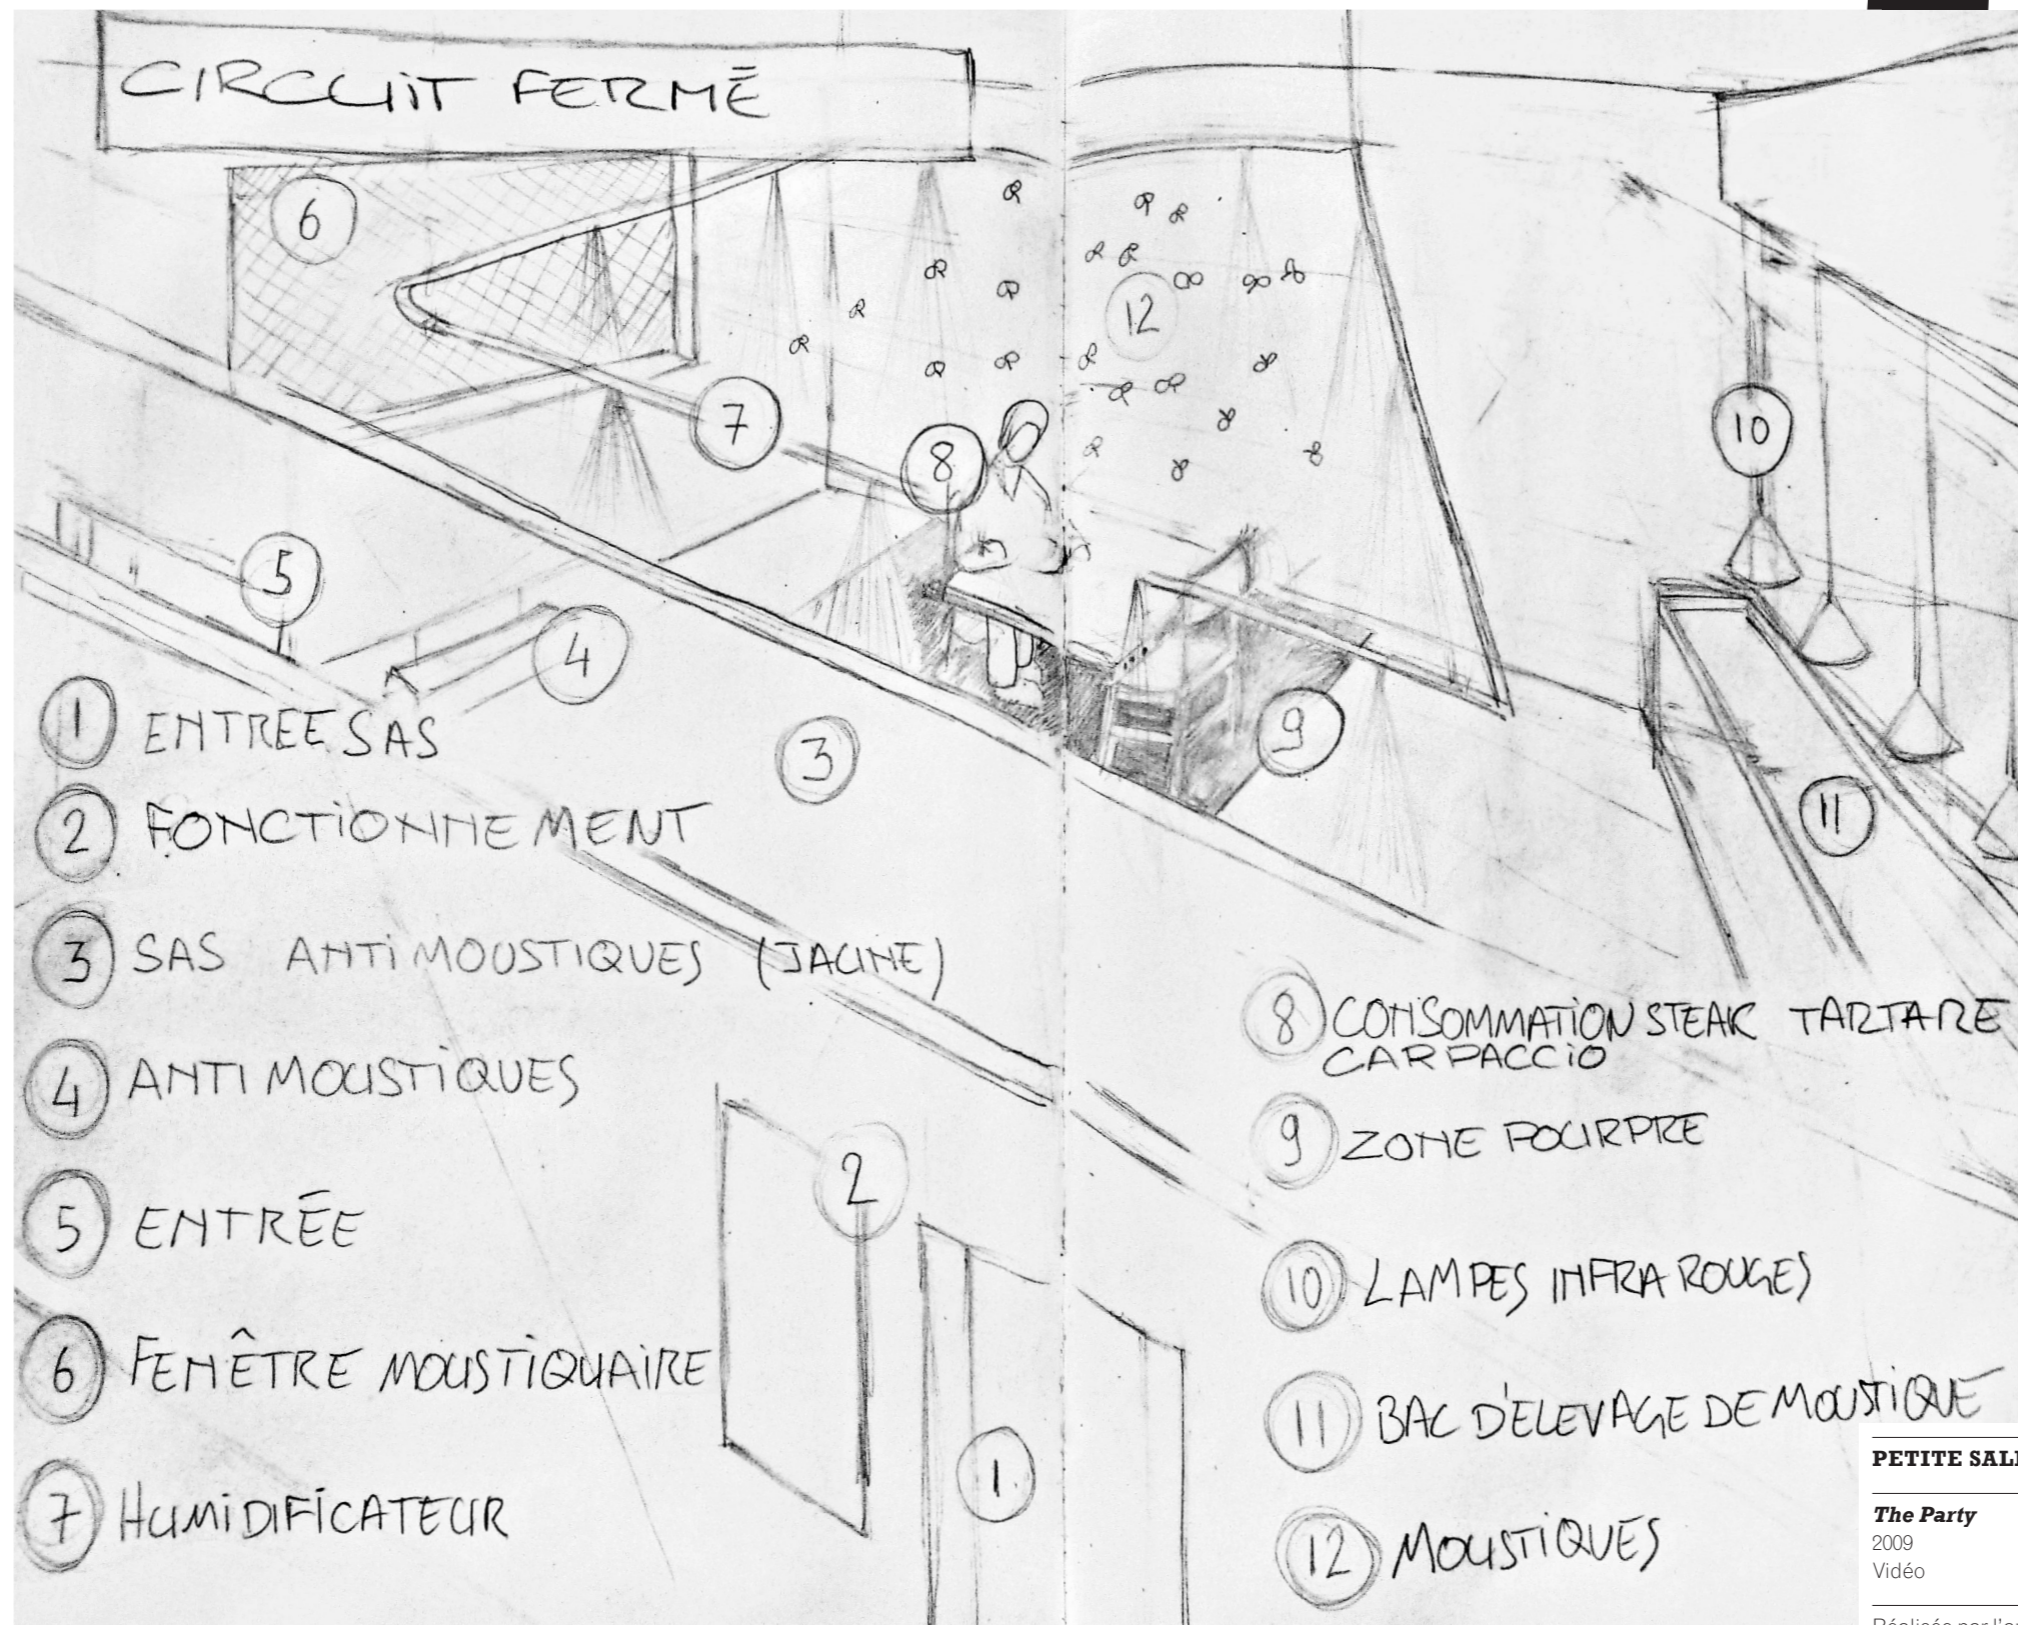 CIRCUIT FERMÉ
6
12
7
8
10
5
4
9
3
11
2
1
1 ENTREE SAS
2 FONCTIONNEMENT
3 SAS ANTIMOUSTIQUES (JAUNE)
4 ANTIMOUSTIQUES
5 ENTRÉE
6 FENÊTRE MOUSTIQUAIRE
7 HUMIDIFICATEUR
8 CONSOMMATION STEAK TARTARE
CARPACCIO
9 ZONE POURPRE
10 LAMPES INFRA ROUGES
11 BAC D'ELEVAGE DE MOUSTIQUE
12 MOUSTIQUES
PETITE
The Party
2009
Vidéo